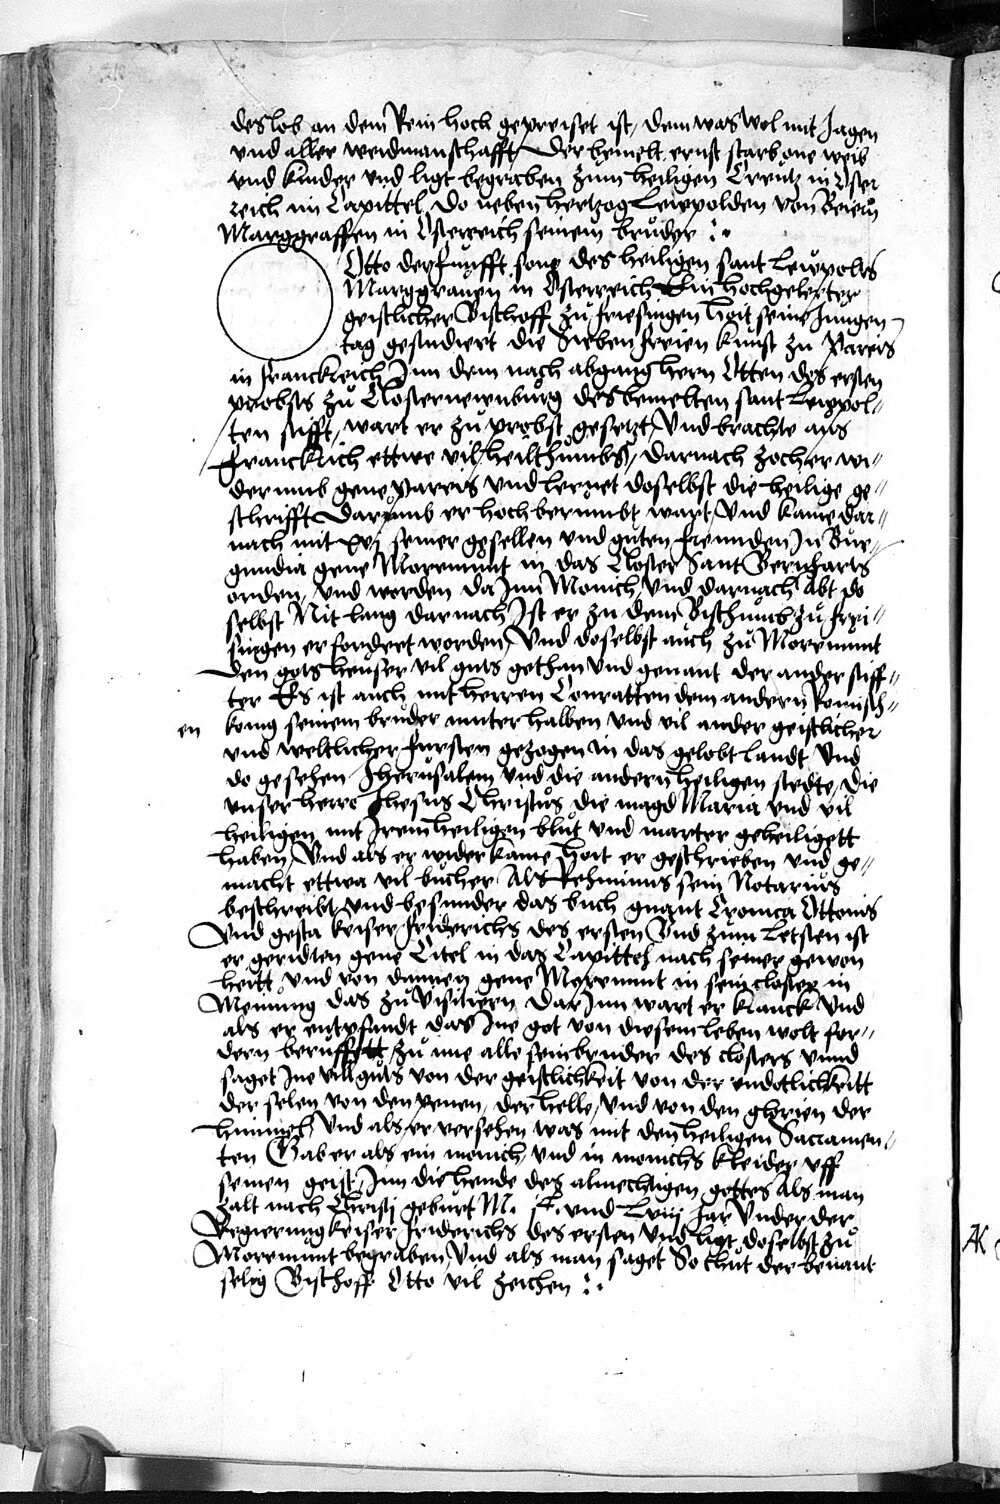 des lob an dem Rein hoch gepreiset ist, dem was wol mit Jagen
vnd aller weidmanschafft Der bemelt ernst starb one weib
vnd kinder vnd ligt begraben zum heiligen Creutz in Oster
reich im Capittel do neben hertzog Lewpolden von Beiern
Marggraffen in Osterreich seinem bruder :~
Otto der funfft sone des heiligen sant Lewpolts
Marggrauen in Osterreich Ein hochgelerter
geistlicher Bischoff zu friesingen hoit seine Jungen
tag gestudiert die Sieben freien kunst zu Pareis
in franckreich Jnn dem nach abgang hern Otten des ersten
probsts zu Closternewnburg des bemelten sant Leuppol=
ten stifft, wart er zu probst gesetzt Vnd brachte aus
Franckrich ettwe vil heilthumbs, darnach zoch er wi=
derumb gene Pareis vnd lernet doselbst die heilige ge=
schrifft Darumb er hoch berumbt wart Vnd kame dar=
nach mit xvj seiner gesellen vnd guten freunden In Bur=
gundia gene Moremunt in das Closter Sant Bernharts
orden, vnd werden da Inn Monich, vnd darnach Abt do
selbst Nit lang darnach Ist er zu dem Bisthumb zu frei=
singen erfordert worden, Vnd doselbst auch zu Moremunt
den gotsheuser vil guts gethan vnd genant der ander stiff=
ter Es ist auch mit herren Conratten dem andern Romisch=
en konig seinem bruder mutter halben vnd vil ander geistlicher
vnd weltlicher fursten gezogen in das gelobt landt Vnd
do gesehen Jherusalem vnd die andern heiligen stedte, die
vnser herre Jhesus Christus die magd Maria vnd vil
heiligen mit Irem heiligen blut vnd marter geheiligett
haben, Vnd als er wider kame hoit er geschrieben vnd ge=
macht ettwa vil bucher Als Rehminus sein Notarius
beschreibt, vnd besunder das buch gnant Cronica Ottonis
Vnd gesta keiser friderichs des ersten Vnd zum letsten ist
er geridten gene Citel in das Capittel nach seiner gewon
heitt vnd von dannen gene Moremunt in sein closter in
Meinung das zu visitiern Dar Inn wart er kranck Vnd
als er entpfandt das Ine got von diesem leben wolt for=
dern berufftt zu ime alle sein bruder des closters vnnd
saget Ine vill guts von der geistlichkeit von der vndotlichkeitt
der selen von den penen, der helle, vnd von den glorien der
himmel Vnd als er versehen was mit den heiligen Sacramen=
ten Gab er als ein monich vnd in monichs kleider vff
seinen geist, Inn die hende des almechtigen gottes Als man
zalt nach Christj geburt M. C. vnd Lviij Jar Vnder der
Regierung keiser Friderichs des ersten Vnd ligt doselbst zu
Moremunt begraben, Vnd als man saget So thut der benant
selig Bischoff Otto vil zeichen :~